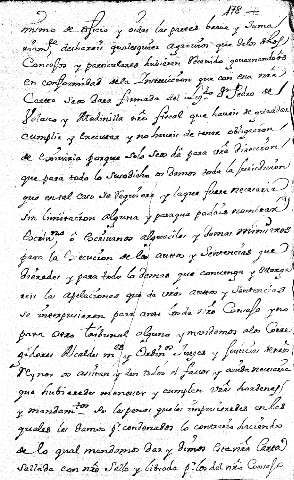 178
mismo de oficio y oidas las partes breve y suma
riam.te desharan qualesquier agravios que de los dhos
Concejos y particulares hubieren recivido guardandoos
en conformidad de la Instruccion que con esta nra
Carta sera dada firmada del Lizdo Dn Pedro de
Polanco y Medinilla nro fiscal que haveis de guardar
cumplir y executar y no haveis de tener obligacion
de embiarla porque solo se os da para vra direccion
que para todo lo susodicho os damos toda la jurisdicion
que en tal caso se requiere y la que fuere necesaria
sin limitacion alguna y para que podais nombrar
Escriv.no o Escrivanos alguaciles y demas ministros
para la execucion de los autos y Sentencias que
dieredes y para todo lo demas que convenga y otorga
reis las apelaciones que de vros autos y Sentencias
se interpusieren para ante los del nro Consejo y no
para otro tribunal alguno y mandamos a los Corre
gidores Alcaldes m.es y Ordin.os Jueces y Justicias de estos
Reynos os asistan y den todo el favor y auxilio necesario
que hubieredes menester y cumplan vras hordenes
y mandam.tos so las penas que les impusieredes en las
quales les damos p.r condenados lo contrario haciendo
de lo qual mandamos dar y dimos esta nra Carta
sellada con nro Sello y librada p.r los del nro Consejo